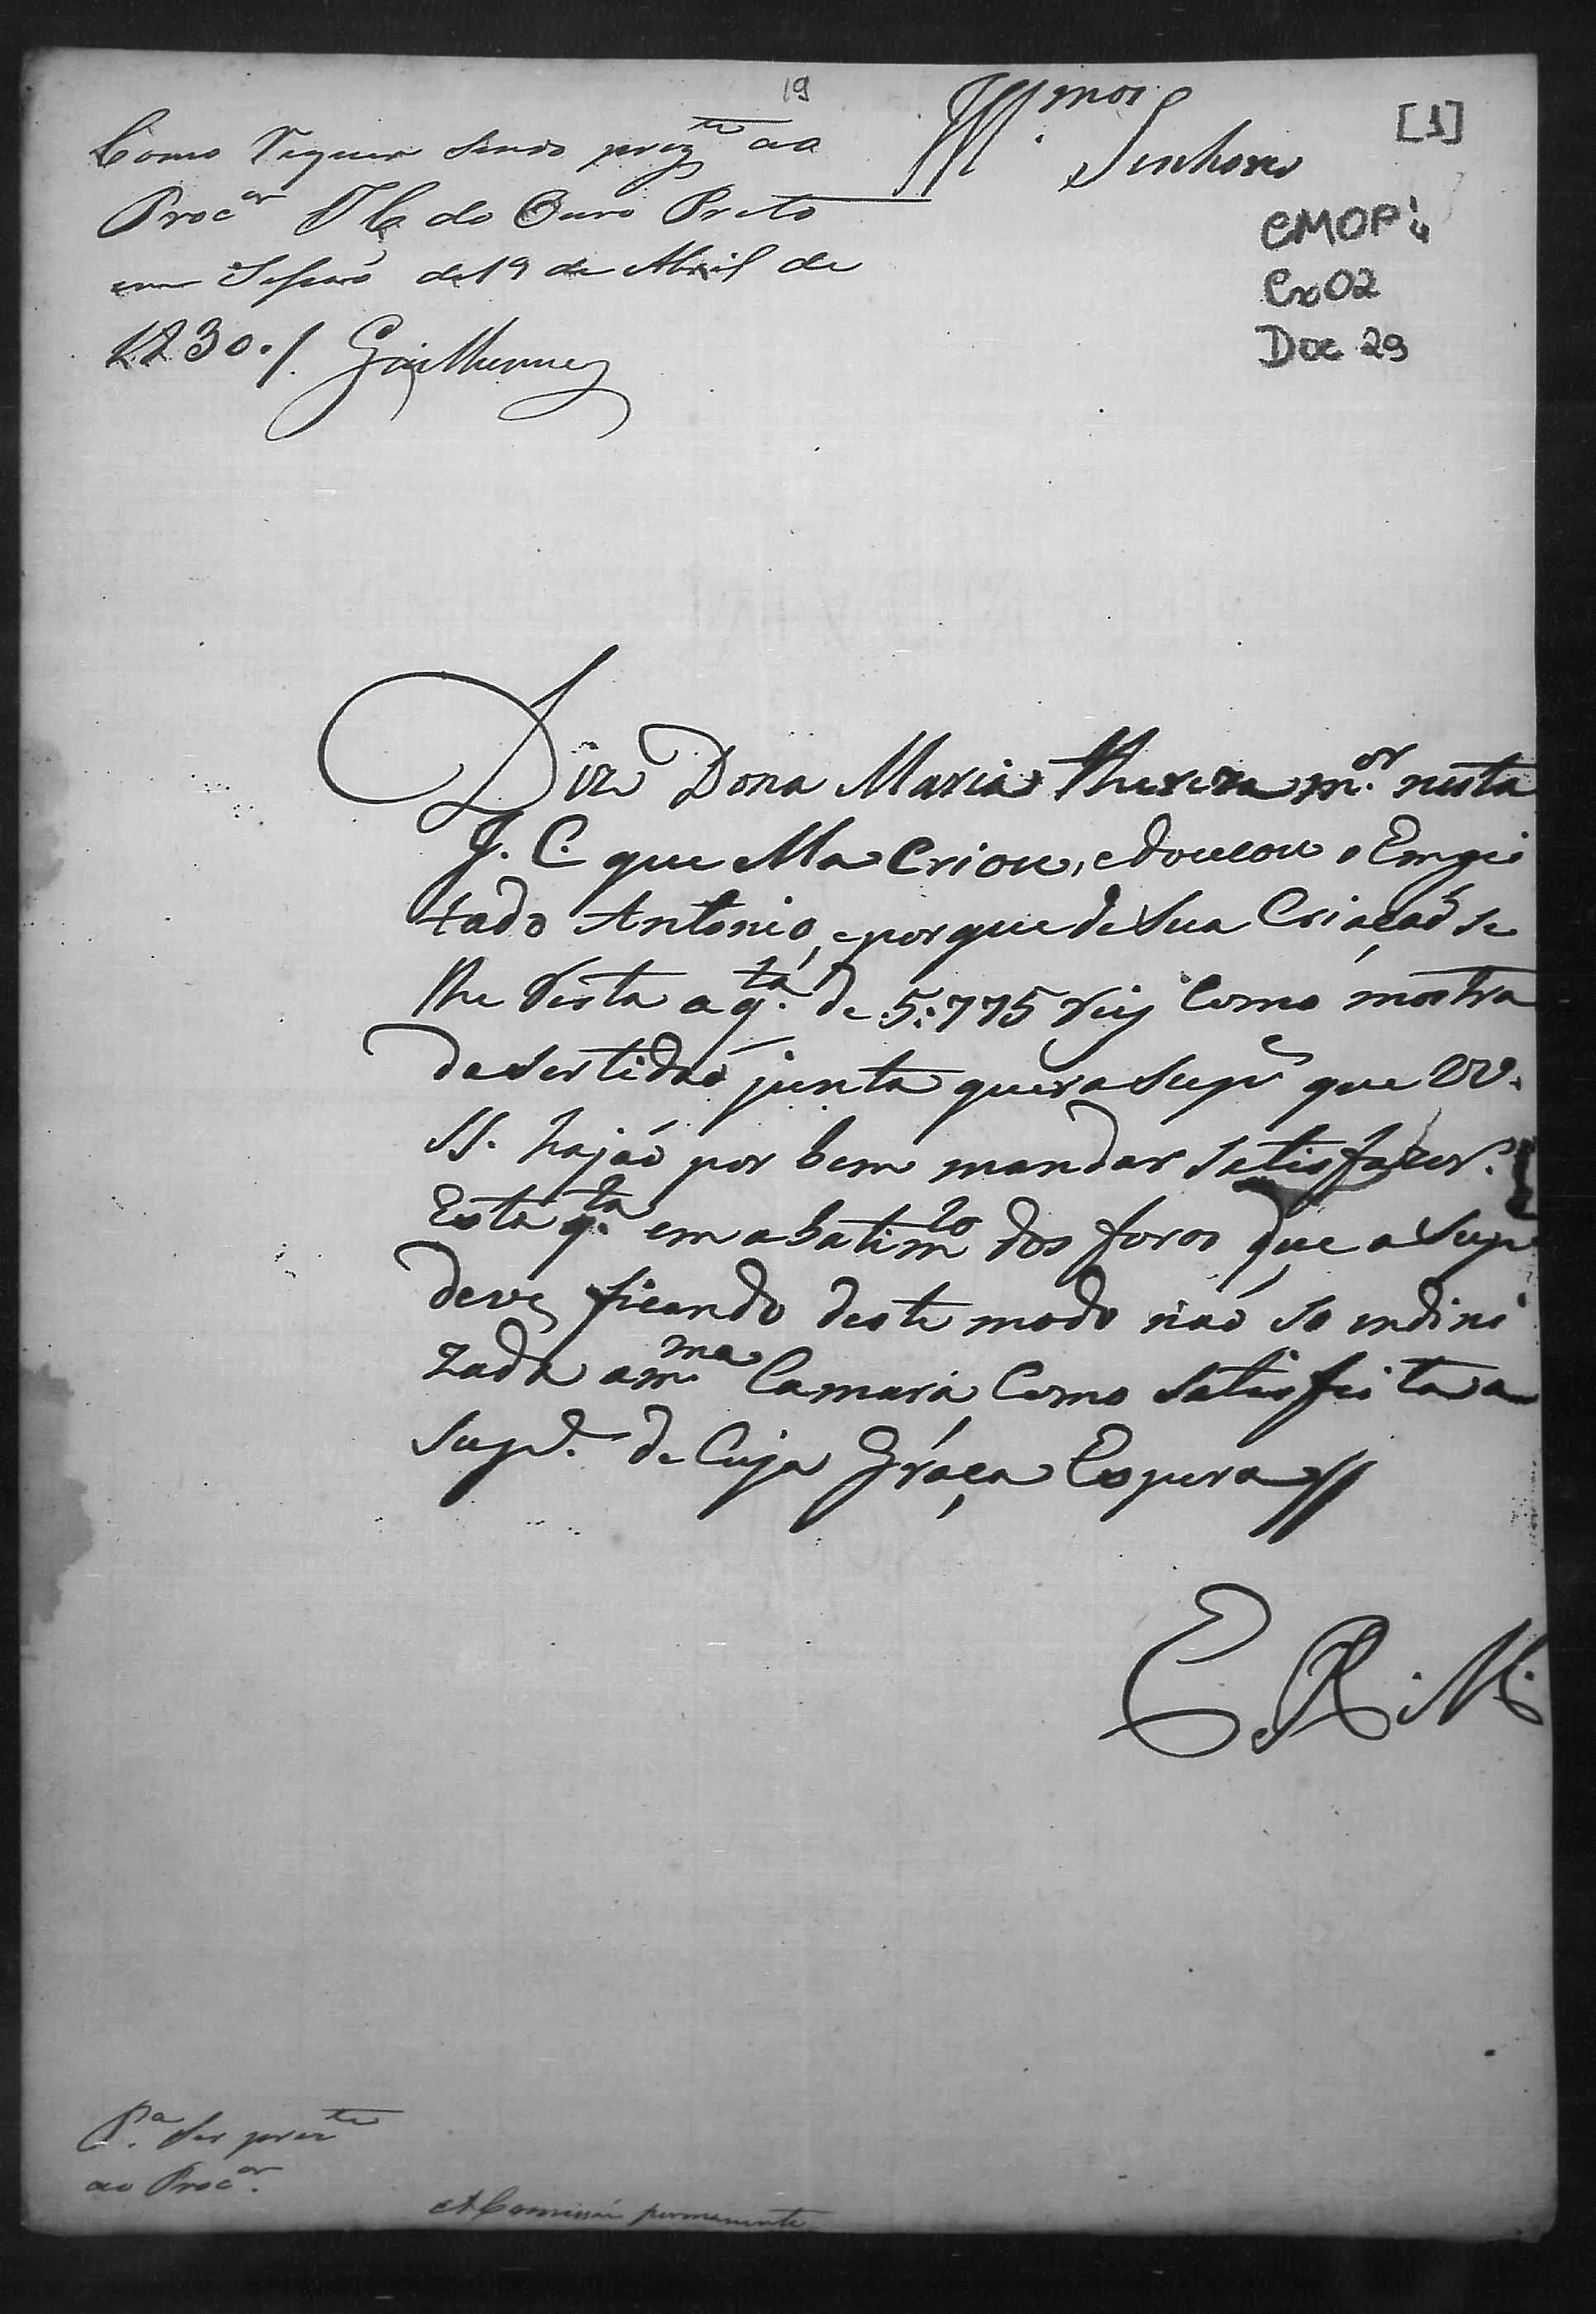 19
Ill.mos Senhores
[1]
CMOP:
Cx02
Doc 29
Como Requer sendo prez.te ao
Proc.or I C do Ouro Preto
em Sessaõ de 19 de Abril de
1830./ Guilherme
Diz Dona Maria Thereza m.or nesta
I. C. que Ella Criou, edoucou o Emgei
tado Antonio, eporque de Sua Criaçaõ se
lhe Resta a q.ta de 5:775 reis Como mostra
da sertidaõ junta quer a Sup.e que VV.
SS. hajaõ por bem mandar Satisfazer.
Esta q.ta em abatim.to dos foros que a Sup
deve, ficando deste modo naõ so endini
zada a m.ma Camara Como Satisfeita a
Sup.e de Cuja Graça Espera
E. R. M.
P.a Ser prez.te
ao Proc.or
A Comissaõ permanente